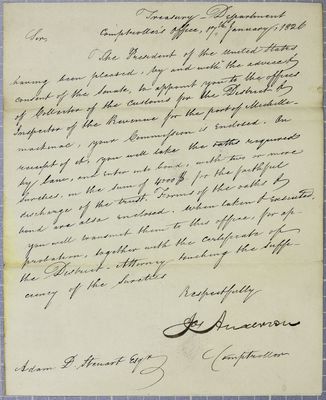 Treasury Department
Comptroller's Office, 19th January, 1826
Sir,
The President of the United States
having been pleased, by and with the advice &
consent of the Senate, to appoint you to the offices
of Collector of the Customs for the District, &
Inspector of the Revenue for the port of Michilli-
mackinac, your Commission is enclosed. On
receipt of it, you will take the oaths required
by law, and enter into bond, with two or more
sureties, in the sum of 4000$ for the faithful
discharge of the trust. Forms of the oaths &
bond are also enclosed. When taken & executed,
you will transmit them to this office, for ap-
probation, together with the certificate of
the District Attorney touching the suffi-
ciency of the Sureties
Respectfully
Jos Anderson
Comptroller
Adam D. Stewart Esqr